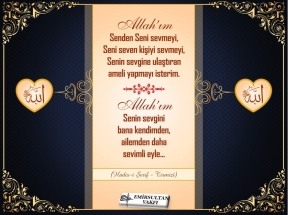 Allah'ım
Senden Seni sevmeyi,
Seni seven kişiyi sevmeyi,
Senin sevgine ulaştıran
ameli yapmayı isterim.
الله
الله
Allah'ım
Senin sevgini
bana kendimden,
ailemden daha
sevimli eyle...
(Hadis-i Şerif - Tirmizi)
EMİRSULTAN
VAKFI